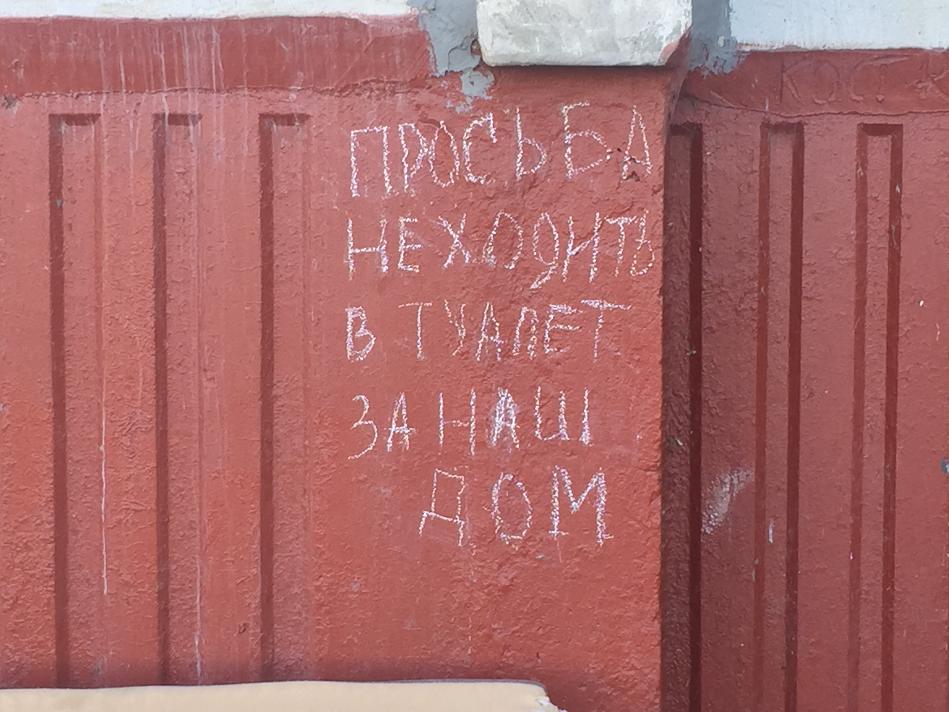 ПРОСЬБА
НЕ ХОДИТЬ
В ТУАЛЕТ
ЗА НАШ
ДОМ